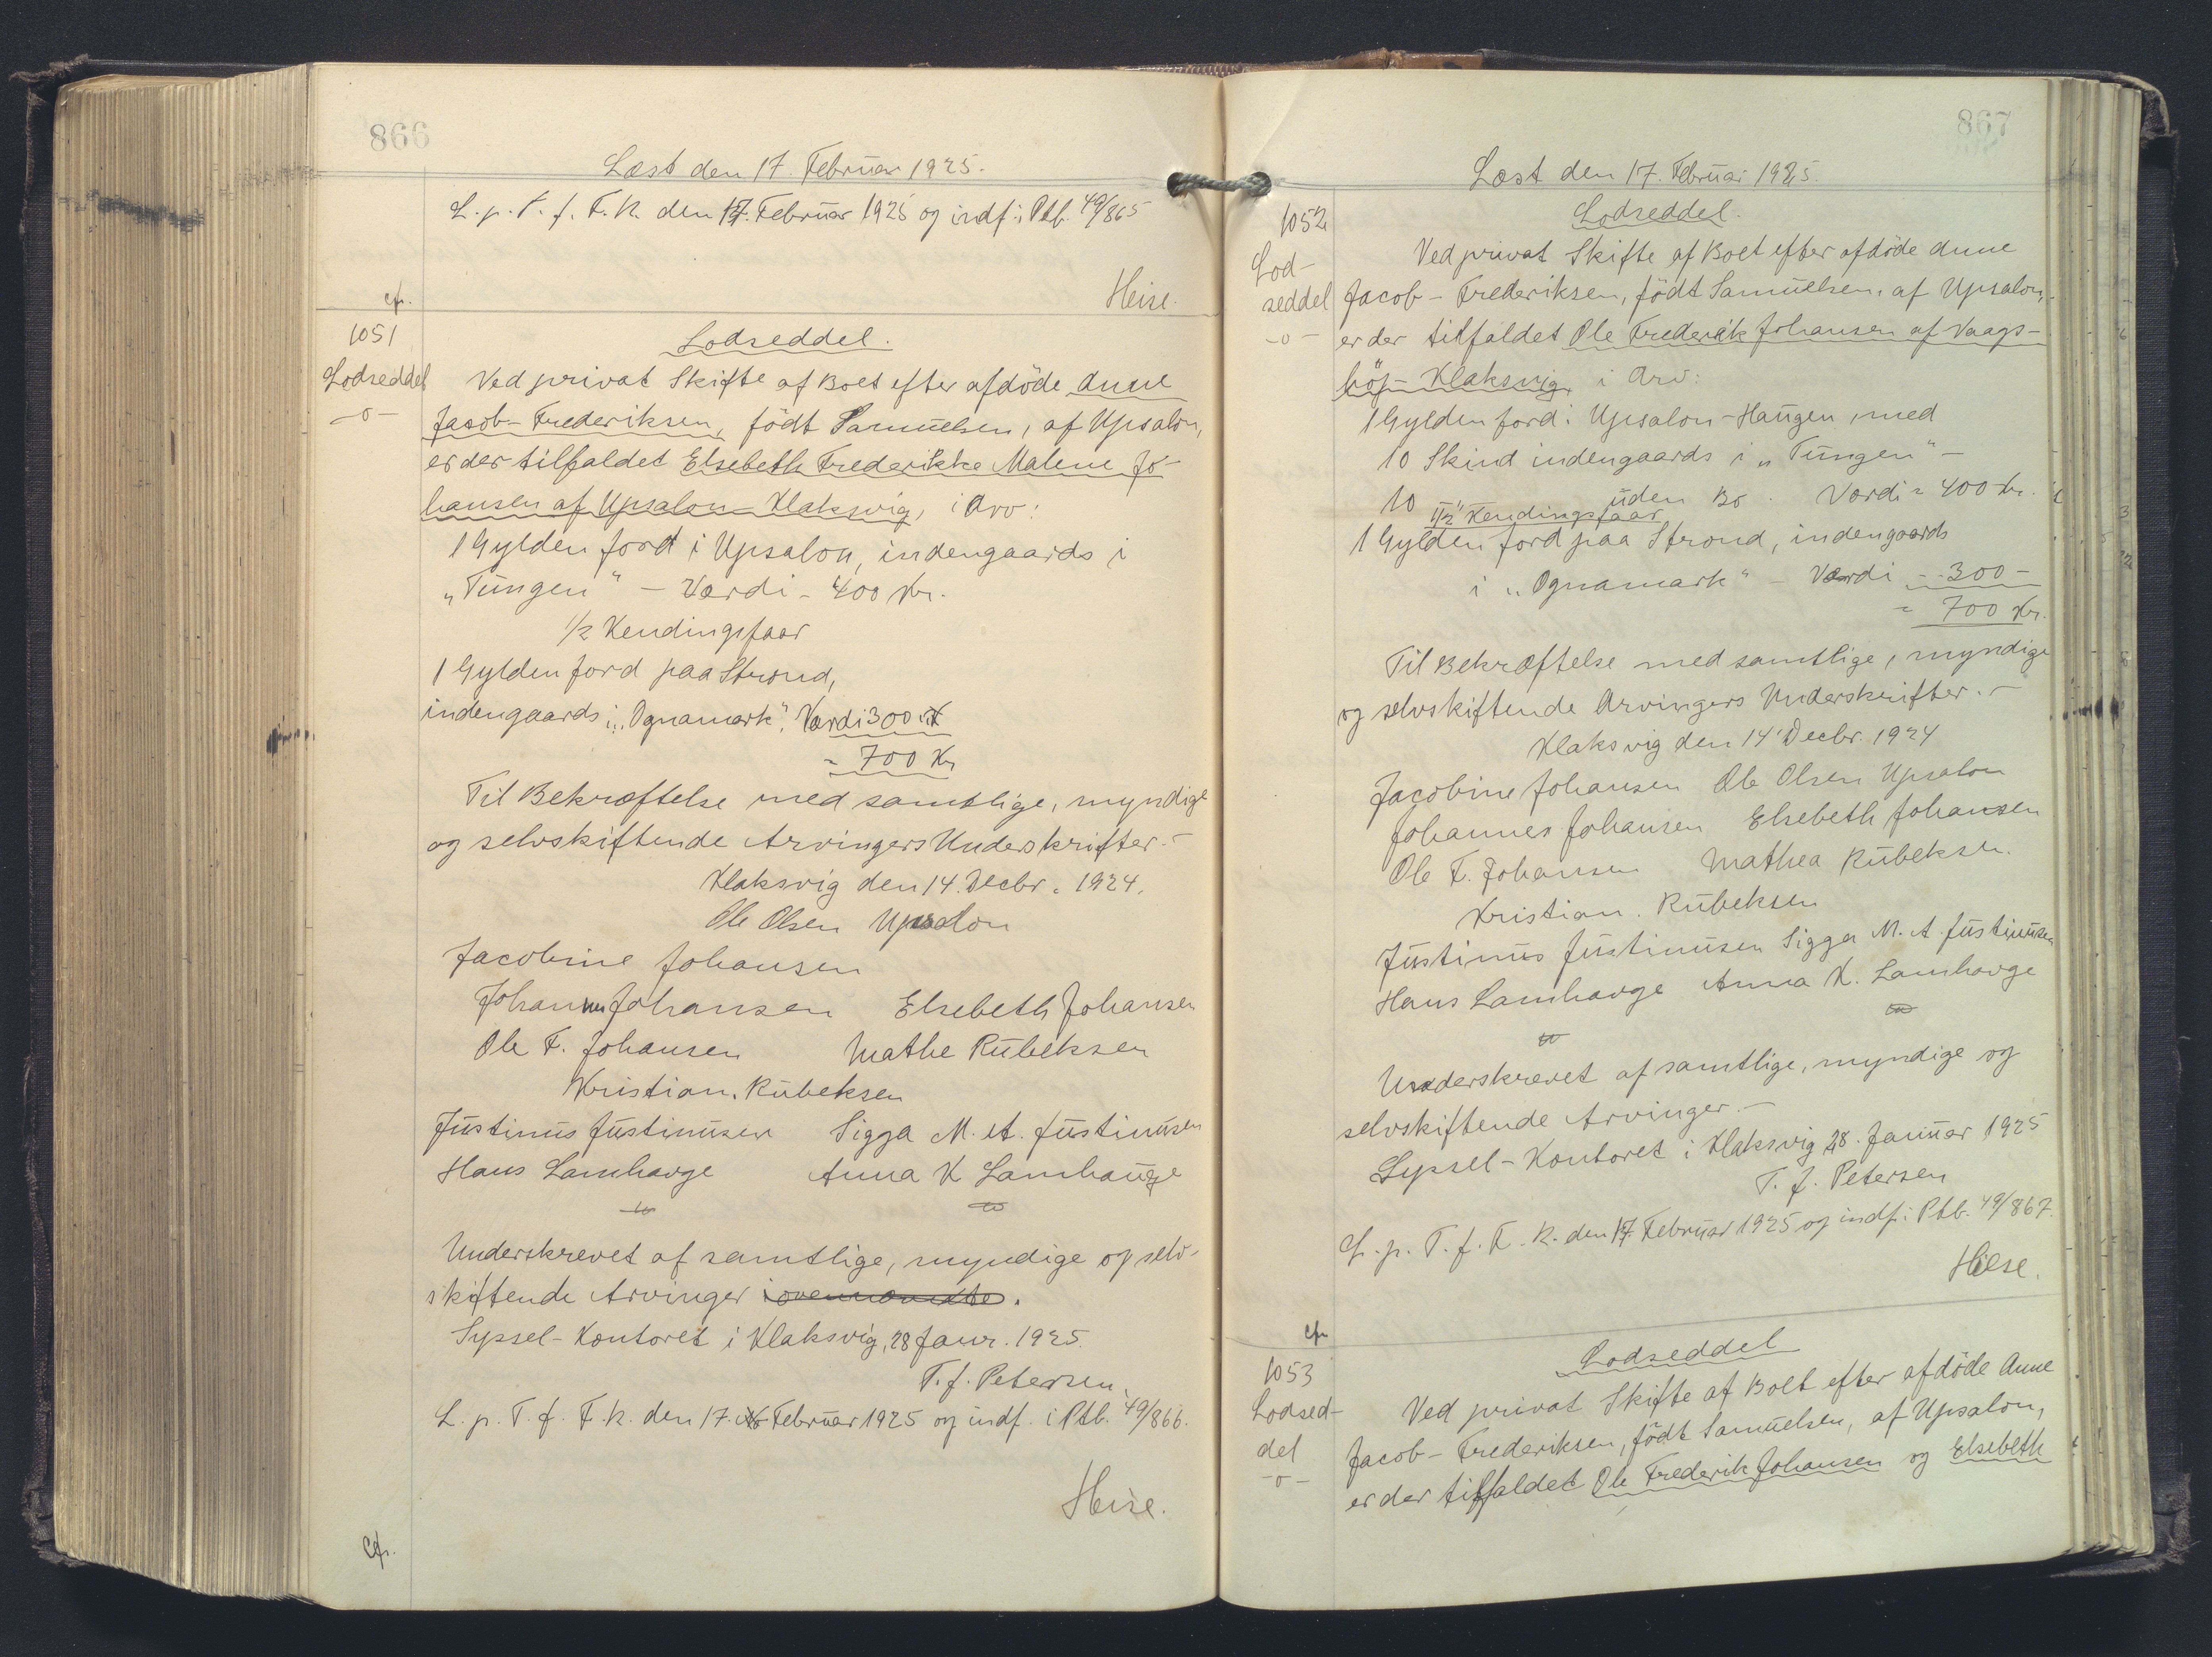 866
Læst den 17. Februar 1925.
L. p. T. f. F. R. den 17. Februar 1925 og indf. i Ptb. 49/865
Heise.
cfr.
1051
Lodseddel
-o-
Lodseddel.
Ved privat Skifte af Boet efter afdöde Anne
Jacob-Frederiksen, födt Samuelsen, af Upsalon,
er der tilfaldet Elsebeth Frederikke Malene Jo-
hansen af Upsalon Klaksvig, i Arv:
1 Gylden Jord i Upsalon, indengaards i
"Tungen" - Værdi - 400 Kr.
1/2 Kendingsfaar
1 Gylden Jord paa Strond,
indengaards i "Ognamark". Værdi 300
= 700 Kr
Til Bekræftelse med samtlige, myndige
og selvskiftende Arvingers Underskrifter.-
Klaksvig den 14. Decbr. 1924.
Ole Olsen Upsalon
Jacobine Johansen
Johannes Johansen Elsebeth Johansen
Ole F. Johansen Mathe Rubeksen
Kristian. Rubeksen
Justinus Justinusen Sigga M. A. Justinusen
Hans Lamhavge Anna K Lamhauge
Underskrevet af samtlige, myndige og selv-
skiftende Arvinger i ovennævnte.
Syssel-Kontoret i Klaksvig, 28 Janr. 1925.
T. J. Petersen
L. p. T. f. F. R. den 17. Februar 1925 og indf. i Ptb. 49/866.
Heise.
Cfr.
867
Læst den 17. Februar 1925.
1052
Lod-
seddel
-o-
Lodseddel.
Ved privat Skifte af Boet efter afdöde Anne
Jacob-Frederiksen, födt Samuelsen, af Upsalon,
er der tilfaldet Ole Frederik Johansen af Vaags-
höj-Klaksvig i Arv:
1 Gylden Jord i Upsalon-Haugen, med
10 Skind indengaards i "Tungen" -
10 uden Bø. Værdi = 400 Kr.
1/2 Kendingsfaar
1 Gylden Jord paa Strond, indengaards
i "Ognamark" - Værdi - 300 -
= 700 Kr.
Til Bekræftelse med samtlige, myndige
og selvskiftende Arvingers Underskrifter.-
Klaksvig den 14' Decbr. 1924
Jacobine Johansen Ole Olsen Upsalon
Johannes Johansen Elsebeth Johansen
Ole F. Johansen Mathea Rubeksen.
Kristian. Rubeksen
Justinus Justinusen Sigga M. A. Justinusen
Hans Lamhavge Anna K. Lamhavge
Underskrevet af samtlige, myndige og
selvskiftende Arvinger.-
Syssel-Kontoret i Klaksvig 28. Januar 1925
T. J. Petersen
L. p. T. f. F. R. den 17. Februar 1925 og indf. i Ptb. 49/867.
Heise.
cfr
1053
Lodsed-
del
-o-
Lodseddel
Ved privat Skifte af Boet efter afdöde Anne
Jacob-Frederiksen, födt Samuelsen, af Upsalon,
er der tilfaldet Ole Frederik Johansen og Elsebeth